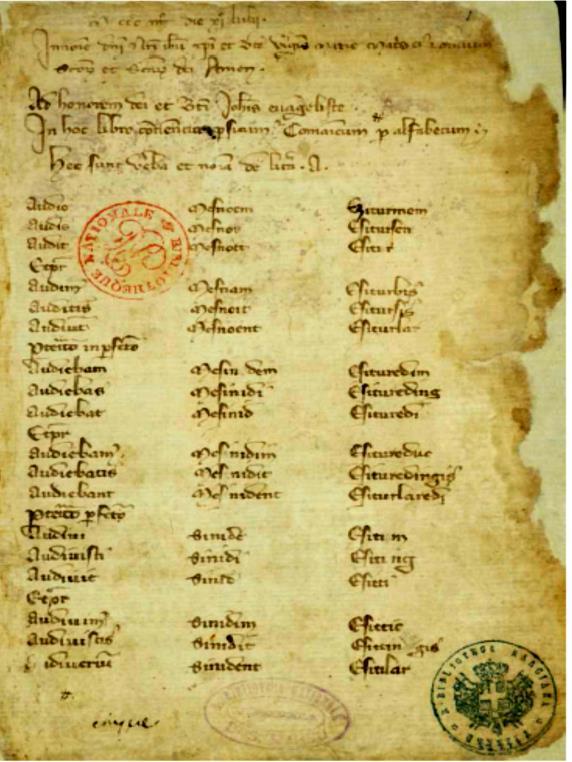 M ccc iij die xj Iulii.
In noie dni nri ihu xpi et bte Virgis marie matris
Sctor et Sctar dei Amen.
Ad honorem dei et Bti Johis euageliste
In hoc libro continentur psicum & Comanicum p alfabetum
Hec sunt verba et noia de litra .A.
Audio Mesnoem Eziturmem
Audis Mesnoy Esitursen
Audit Mesnott Esitir
Et pr
Audimus Mesnoam Esiturbis
Auditis Mesnoit Esitursis
Audiunt Mesnoent Esiturlar
Pteito inpfeto
Audiebam Mesin dem Esituredim
Audiebas Mesinidi Esitureding
Audiebat Mesinid Esituredi
Et pr
Audiebam9 Mesinidim Esitureduc
Audiebatis Mesinidit Esituredingis
Audiebant Mesinident Esiturlaredi
Pteito pfeto
Audiui Sinide Esiti m
Audiuisti Sinidi Esiti ng
Audiuit Sinid Esiti
Et pr
Audiuim9 Sinidim Esitic
Audiuistis Sinidit Esitin gis
idiuerunt Sinident Esitilar
BIBLIOTHEQUE NATIONALE